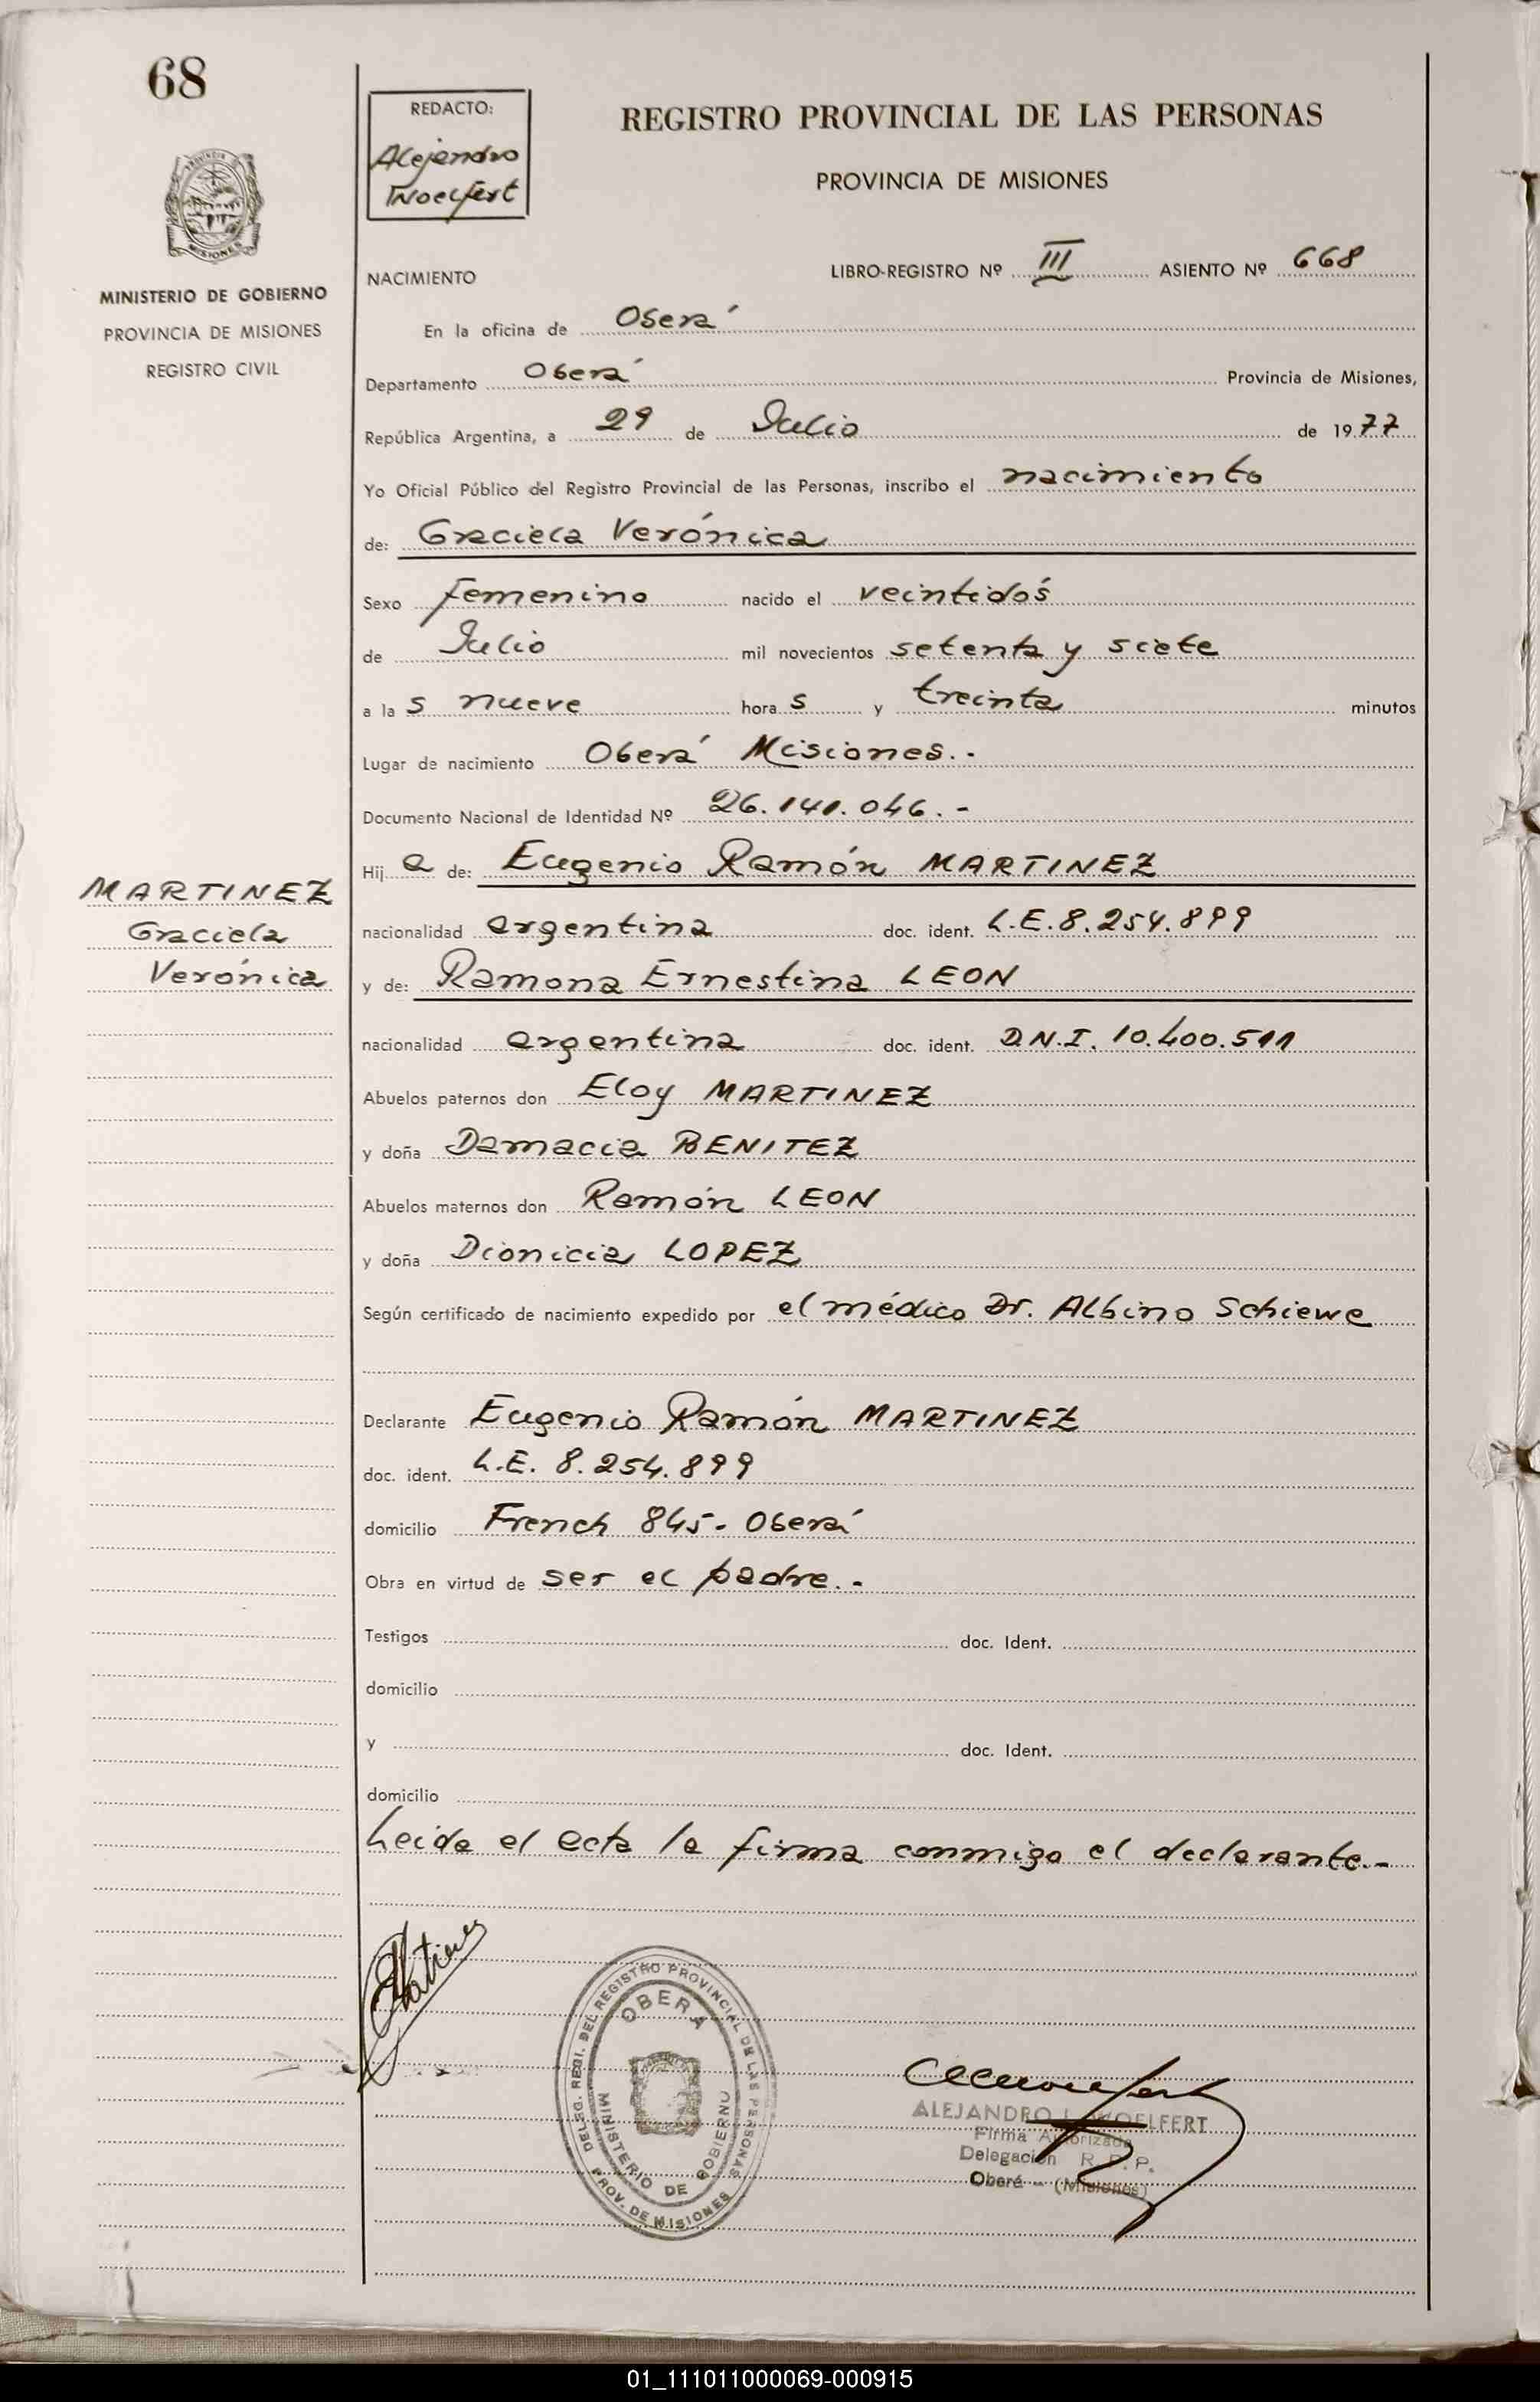 68
REDACTO:
Alejandro
Woelfert
REGISTRO PROVINCIAL DE LAS PERSONAS
PROVINCIA DE MISIONES
PROVINCIA D
MISIONES
MINISTERIO DE GOBIERNO
PROVINCIA DE MISIONES
REGISTRO CIVIL
NACIMIENTO
LIBRO-REGISTRO Nº III ASIENTO Nº 668
En la oficina de Oberá
Departamento Oberá Provincia de Misiones,
República Argentina, a 29 de Julio de 1977
Yo Oficial Público del Registro Provincial de las Personas, inscribo el nacimiento
de: Graciela Verónica
Sexo femenino nacido el veintidós
de Julio mil novecientos setenta y siete
a la s nueve hora s y treinta minutos
Lugar de nacimiento Oberá Misiones.-
Documento Nacional de Identidad Nº 26.141.046.-
Hij a de: Eugenio Ramón MARTINEZ
MARTINEZ
Graciela
Verónica
nacionalidad argentina doc. ident. L.E. 8.254.899
y de: Ramona Ernestina LEON
nacionalidad argentina doc. ident. D.N.I. 10.400.511
Abuelos paternos don Eloy MARTINEZ
y doña Damacia BENITEZ
Abuelos maternos don Ramón LEON
y doña Dionicia LOPEZ
Según certificado de nacimiento expedido por el médico Dr. Albino Schiewe
Declarante Eugenio Ramón MARTINEZ
doc. ident. L.E. 8.254.899
domicilio French 845- Oberá
Obra en virtud de ser el padre.-
Testigos doc. Ident.
domicilio
y doc. Ident.
domicilio
Leida el acta la firma conmigo el declarante.-
DELEG. REGI. DEL REGISTRO PROVINCIAL DE LAS PERSONAS
OBERA
MINISTERIO DE GOBIERNO
PROV. DE MISIONES
ALEJANDRO L. WOELFERT
Firma Autorizada
Delegación R. P. P.
Oberá - (Misiones)
01_111011000069-000915